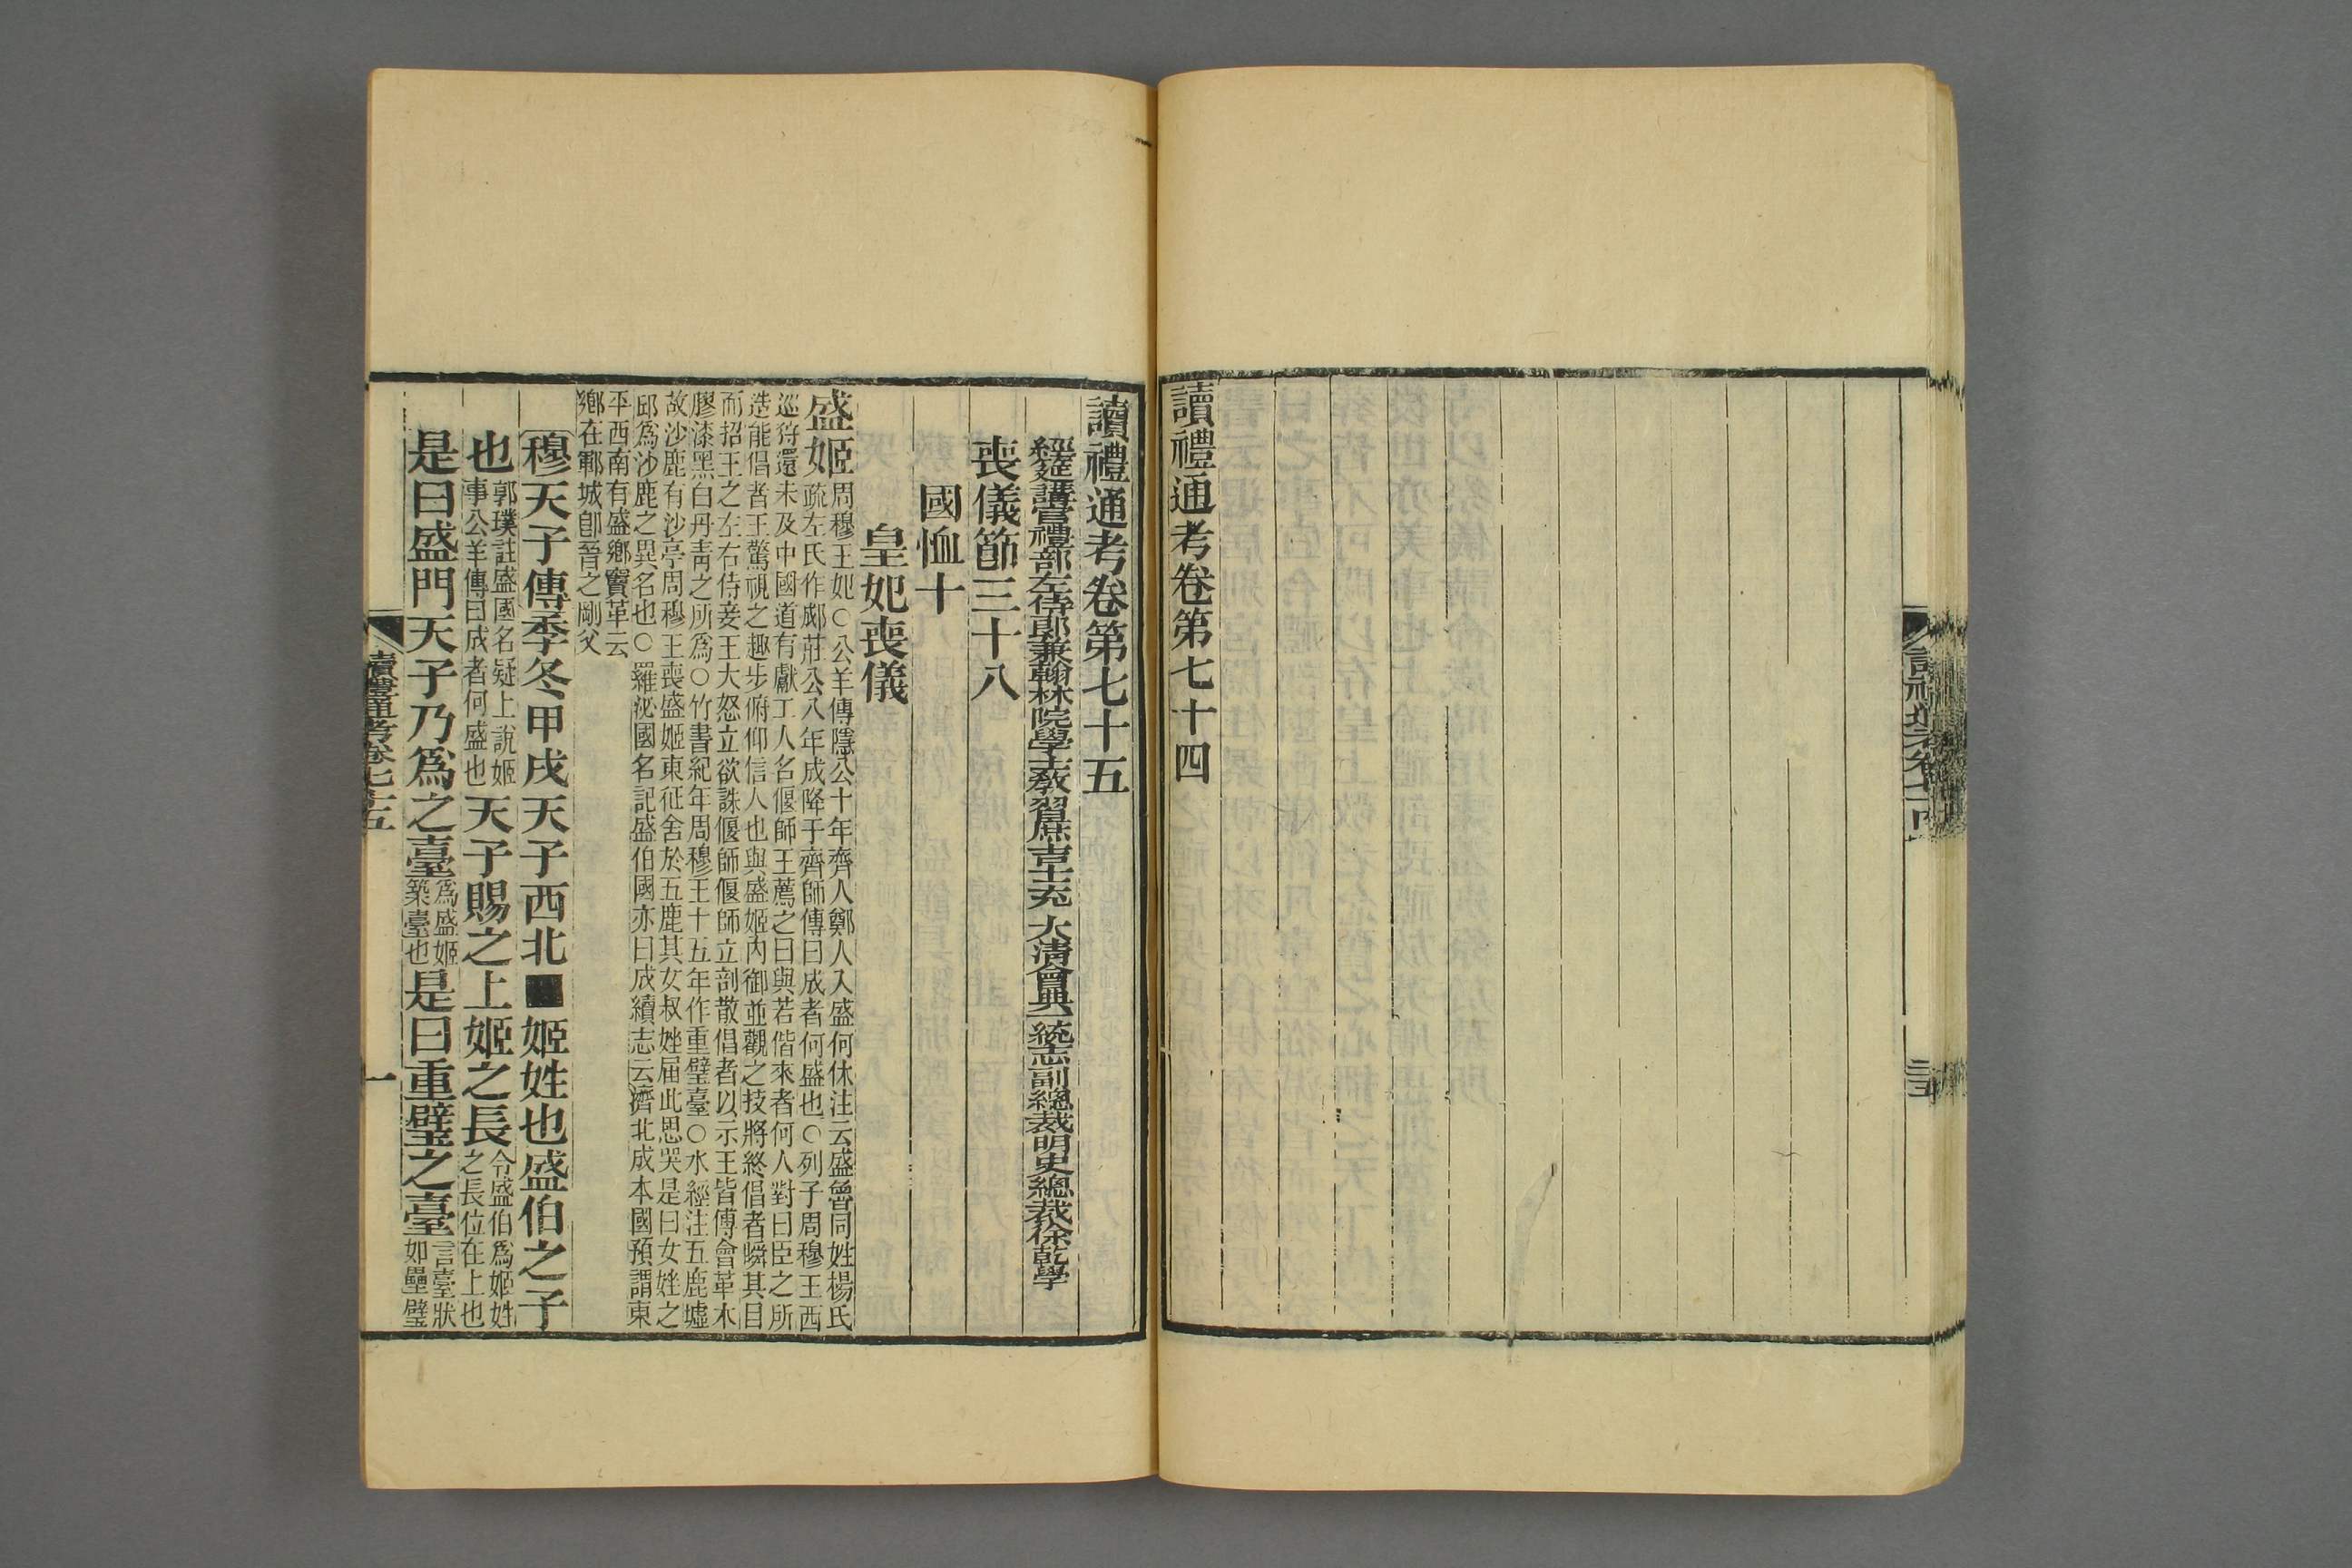 讀禮通考卷第七十四
讀禮通考卷第七十五
經筵講官禮部左侍郎兼翰林院學士敎習庶吉士充 大清會典一統志副總裁明史總裁徐乾學
喪儀節三十八
國恤十
皇妃喪儀
盛姬
周穆王妃○公羊傳隱公十年齊人鄭人入盛何休注云盛魯同姓楊氏
疏左氏作郕莊公八年成降于齊師傳曰成者何盛也○列子周穆王西
巡狩還未及中國道有獻工人名偃師王薦之曰與若偕來者何人對曰臣之所
造能倡者王驚視之趣步俯仰信人也與盛姬內御並觀之技將終倡者瞬其目
而招王之左右侍妾王大怒立欲誅偃師偃師立剖散倡者以示王皆傅會革木
膠漆黑白丹靑之所爲○竹書紀年周穆王十五年作重璧臺○水經注五鹿墟
故沙鹿有沙亭周穆王喪盛姬東征舍於五鹿其女叔㛗屆此思哭是曰女㛗之
邱爲沙鹿之異名也○羅泌國名記盛伯國亦曰成續志云濟北成本國預謂東
平西南有盛鄉竇革云
鄉在鄆城卽晉之剛父
穆天子傳季冬甲戌天子西北■姬姓也盛伯之子
也
郭璞註盛國名疑上說姬
事公羊傳曰成者何盛也
天子賜之上姬之長
令盛伯爲姬姓
之長位在上也
是曰盛門天子乃爲之臺
爲盛姬
築臺也
是曰重璧之臺
言臺狀
如壘璧
讀禮通考卷七十五
一